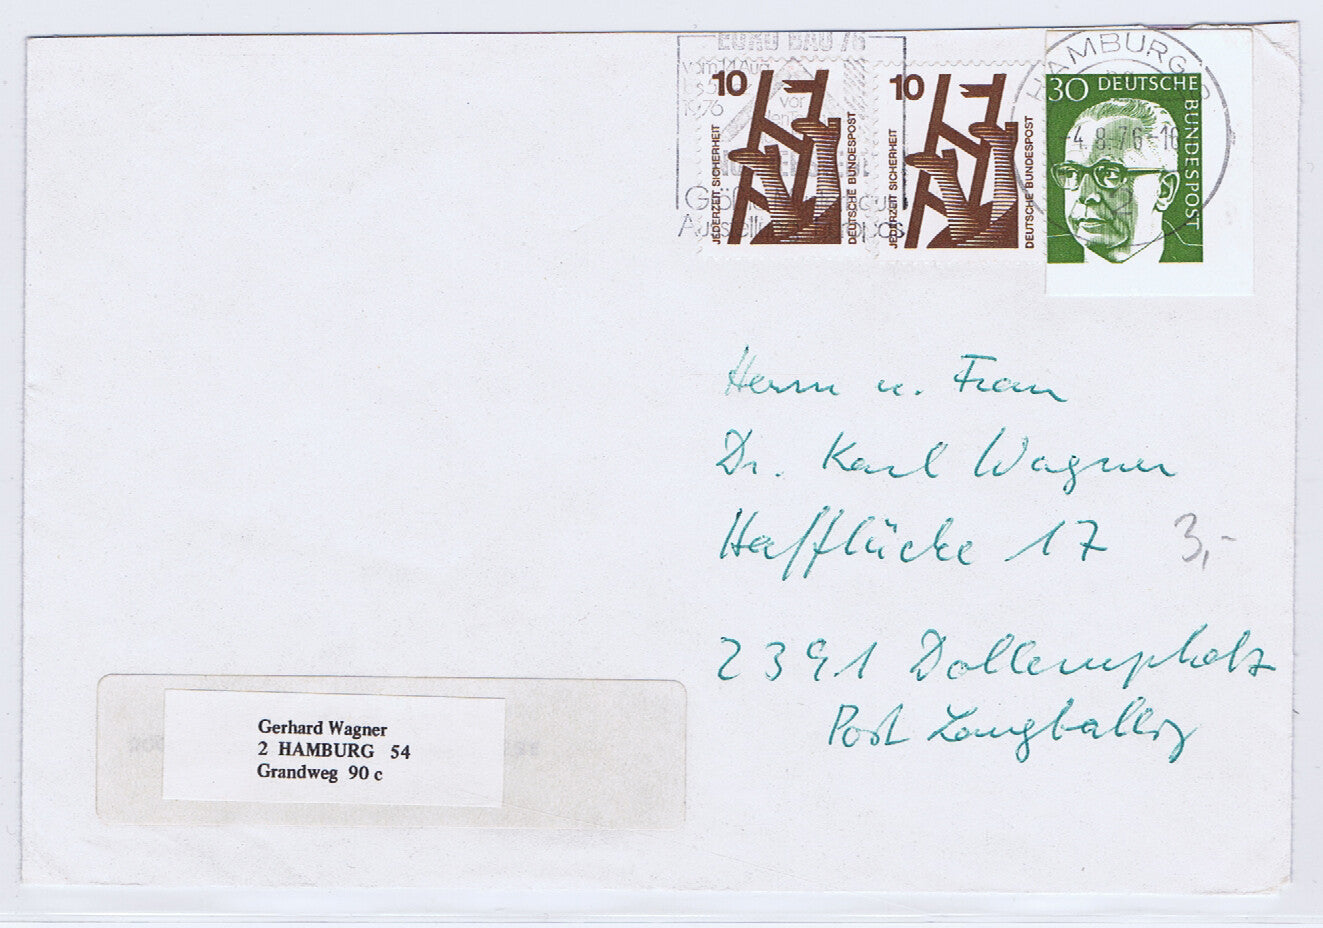 EURO BAU 76
vom 14. Aug.
1976
vor
Ausstellung Europas
10
JEDERZEIT SICHERHEIT
DEUTSCHE BUNDESPOST
10
JEDERZEIT SICHERHEIT
DEUTSCHE BUNDESPOST
HAMBURG
-4.8.76-16
30 DEUTSCHE BUNDESPOST
Herrn u. Frau
Dr. Karl Wagner
Hafflücke 17 3,-
2391 Dollerupholz
Post Langballig
Gerhard Wagner
2 HAMBURG 54
Grandweg 90 c